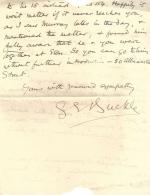 to his 15 . Happily it
won't matter if it never reaches you,
as I saw Murray later in the day, &
mentioned the matter, & found him
fully aware that he & you were
together at . So you can go to him
without further introdn. – 50 Albemarle
Street.
Yours with renewed sympathy
G. E. Buckle